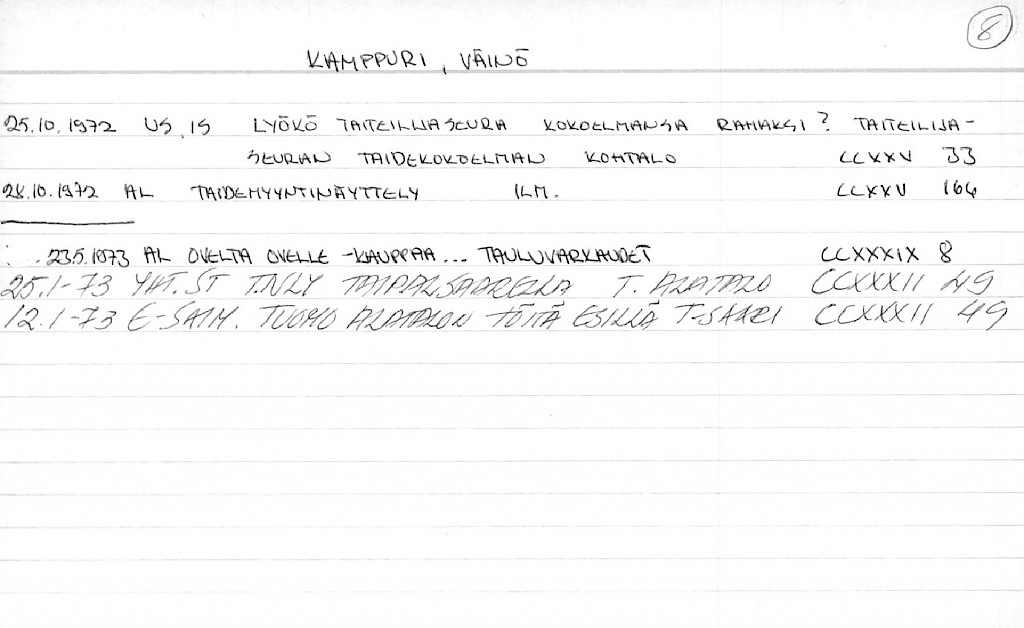 8
KAMPPURI, VÄINÖ
25.10.1972 US, IS LYÖKÖ TAITEILIJASEURA KOKOELMANSA RAHAKSI? TAITEILIJA-
SEURAN TAIDEKOKOELMAN KOHTALO CCXXV 33
28.10.1972 AL TAIDEMYYNTINÄYTTELY ILM. CCXXV 164
23.5.1973 AL OVELTA OVELLE -KAUPPAA... TAULUVARKAUDET CCXXXIX 8
25.1-73 YHT.ST T.NLY TAIPALSAARELLA T. ALATALO CCXXXII 49
12.1-73 E-SAIM. TUOMO ALATALON TÖITÄ ESILLÄ T-SAARI CCXXXII 49